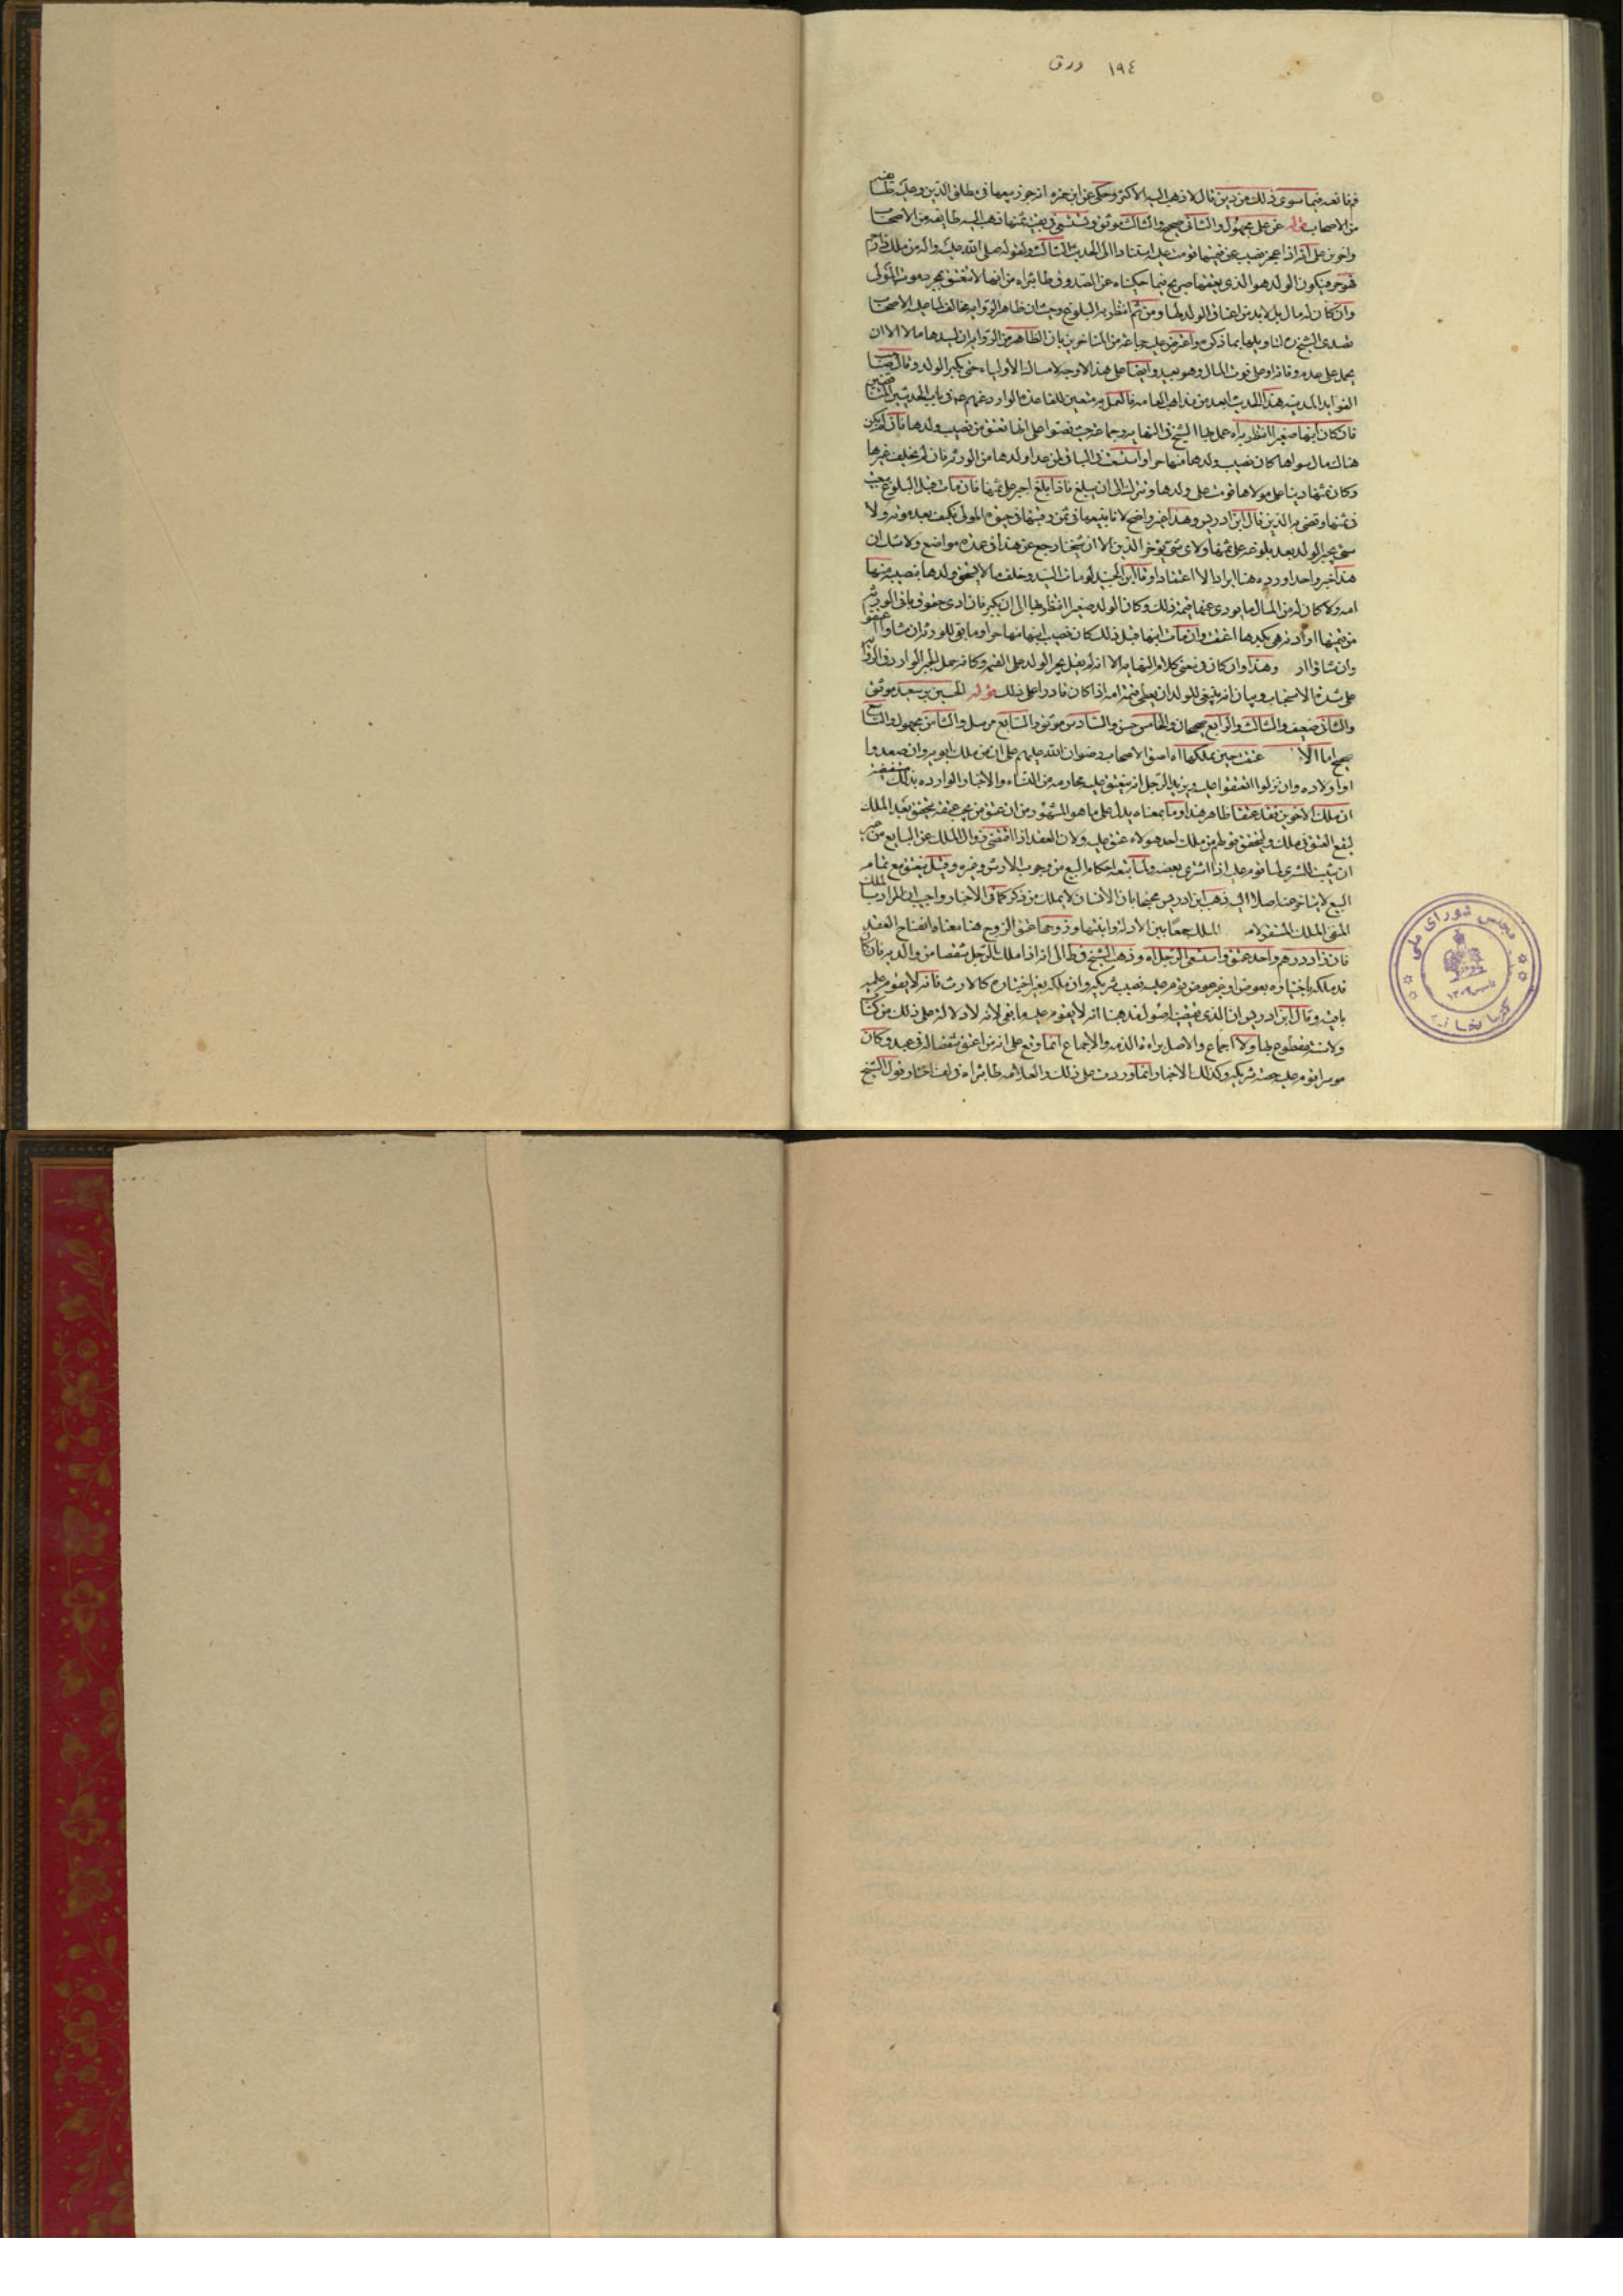 ١٩٤ ورق
فرقا نعه فيما سوى ذلك من دين قال لا ذهب اليه الاكثر وحكى عن ابن حمزه انه جوز بيعها فى مطلق الدين وعليه
من الاصحاب قوله عن على مجهول والثانى صحيح والثالث موثق ذهب اليه طايفه من الاصحاب
واخرين على انه اذا عجز نصيب عن قيمتها قومت عليه استنادا الى الحديث الثالث ولقوله صلى الله عليه واله من ملك ذا رحم
فهو حر فيكون الولد هو الذى يعتقها صريح فيما حكيناه عن الصدوق طاب ثراه من انها لا تنعتق بمجرد موت المولى
وان كان له مال بل لا بد من اعتاق الولد لها ومن ثم انتظر به البلوغ وحيث ان ظاهر الروايه مخالف لما عليه الاصحاب
تصدى الشيخ ره لتاويلها بما ذكره واعترض عليه جماعة من المتاخرين بان الظاهر من الروايه ان ليس لها مال الا ان
يحمل على عدم وفائه او على فوت المال وهو بعيد وايضا على هذا الاوجه لامساك الأولياء حتى يكبر الولد وقال صاحب
الفوايد المدنيه هذا الحديث ابعد من مذاهب العامه فالعمل به متعين للقاعده الوارده عنهم فى باب الحديثين
فان كان ابنها صغيرا انتظر به اه عمل بها الشيخ فى النهايه وجماعة حيث نصوا على انها تعتق من نصيب ولدها فان لم يكن
هناك مال سواها كان نصيب ولدها منها حرا واستسعت فى الباقى لمن عدا ولدها من الورثه فان لم يخلف غيرها
وكان ثمنها دينا على مولاها قومت على ولدها وتترك الى ان يبلغ فاذا بلغ اجبر على ثمنها فان مات قبل البلوغ بيعت
فى ثمنها وقضى به الدين قال ابن ادريس وهذا غير واضح لانا نبيعها فى ثمن رقبتها فى حيوه المولى فكيف بعد موته ولاى
شى يجبر الولد بعد بلوغه على ثمنها ولاى شى يؤخر الدين الا ان شيخنا رجع عن هذا فى عده مواضع ولا شك ان
هذا خبر واحد اورده هنا ايرادا لا اعتقادا وقال ابن الجنيد لو مات السيد وخلف مالا يعتق ولدها بنصيبه منها
امه ولا كان له من المال ما يودى عنها قيمة ذلك وكان الولد صغيرا انتظر بها الى ان يكبر فان ادى حقوق باقى الورثه
من قيمتها او ادته هى بكدها اعتقت وان مات ابنها قبل ذلك كان نصيب ابنها منها حرا وما بقى للورثه ان شاوا اعتقوا
وان شاوا وهذا وان كان فى معنى كلام النهايه الا انه لم يقل يجبر الولد على القيمه وكانه حمل الخبر الوارد فى
على شده الاستحباب وبيان انه ينبغى للولد ان يعطى قيمة امه اذا كان قادرا على ذلك قوله الحسين بن سعيد موثق
والثانى ضعيف والثالث والرابع صحيحان والخامس حسن والسادس موثق والسابع مرسل والثامن مجهول والتاسع
صحيح اما الا عتقت حين يملكها اه اصفق الاصحاب رضوان الله عليهم على ان من ملك ابويه وان صعدوا
او اولاده وان نزلوا انعتقوا عليه ويزيد الرجل انه ينعتق عليه محارمه من النساء والاخبار الوارده بذلك مستفيضة
ان ملك الاخوين فقد عتقا ظاهر هذا وما بمعناه يدل على ما هو المشهور من ان عتق من يجب عتقه يتحقق بعد الملك
ليقع العتق فى ملك وليتحقق قولهم من ملك احد هولاء عتق عليه ولان العقد اذا اقتضى زوال الملك عن البايع من غير
ان يثبت للمشترى لما قوم عليه اذا اشترى بعضه ولما تبعه احكام البيع من وجوب الارش وغيره وقيل ينعتق مع تمام
البيع لا يتاخر عنه اصلا اليه ذهب ابن ادريس محتجا بان الانسان لا يملك من ذكر كما فى الاخبار واجيب ان المراد بالملك
المنفى الملك المستقر لا الملك جمعا بين الادله وابنتها وزوجها عتق الزوج هنا معناه انفتاح العقد
فان زاد درهم واحد عتق واستسعى الرجل اه وذهب الشيخ فى الى انه اذا ملك الرجل شقصا من والديه فان كان
قد ملكه باختياره بعوض او غير عوض قوم عليه نصيب شريكه وان ملكه بغير اختياره كالارث فانه لا يقوم عليه
باقيه وقال ابن ادريس ان الذى يقتضيه اصول مذهبنا انه لا يقوم عليه ما بقى لانه لا دلاله على ذلك من كتاب
ولا سنة مقطوع بها ولا اجماع والاصل براءة الذمه والاجماع انما وقع على انه من اعتق شقصا له فى عبد وكان
موسرا قوم عليه حصه شريكه وكذلك الاخبار انما وردت على ذلك والعلامه طاب ثراه فى لف اختار قول الشيخ
مجلس شورای ملی
کتابخانه